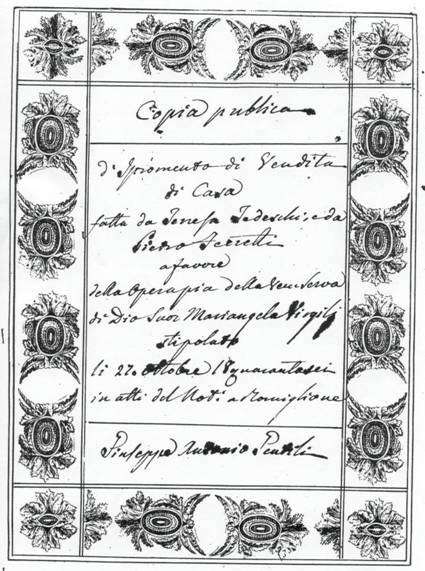 Copia publica
d'Istromento di Vendita
di Casa
fatta da Teresa Tedeschi, e da
Pietro Ferretti
a favore
della Opera pia della Ven. Serva
di Dio Suor Mariangela Virgilj
stipolato
li 27. Ottobre 18quarantasei
in atti del Not. a Ronciglione
Giuseppe Antonio